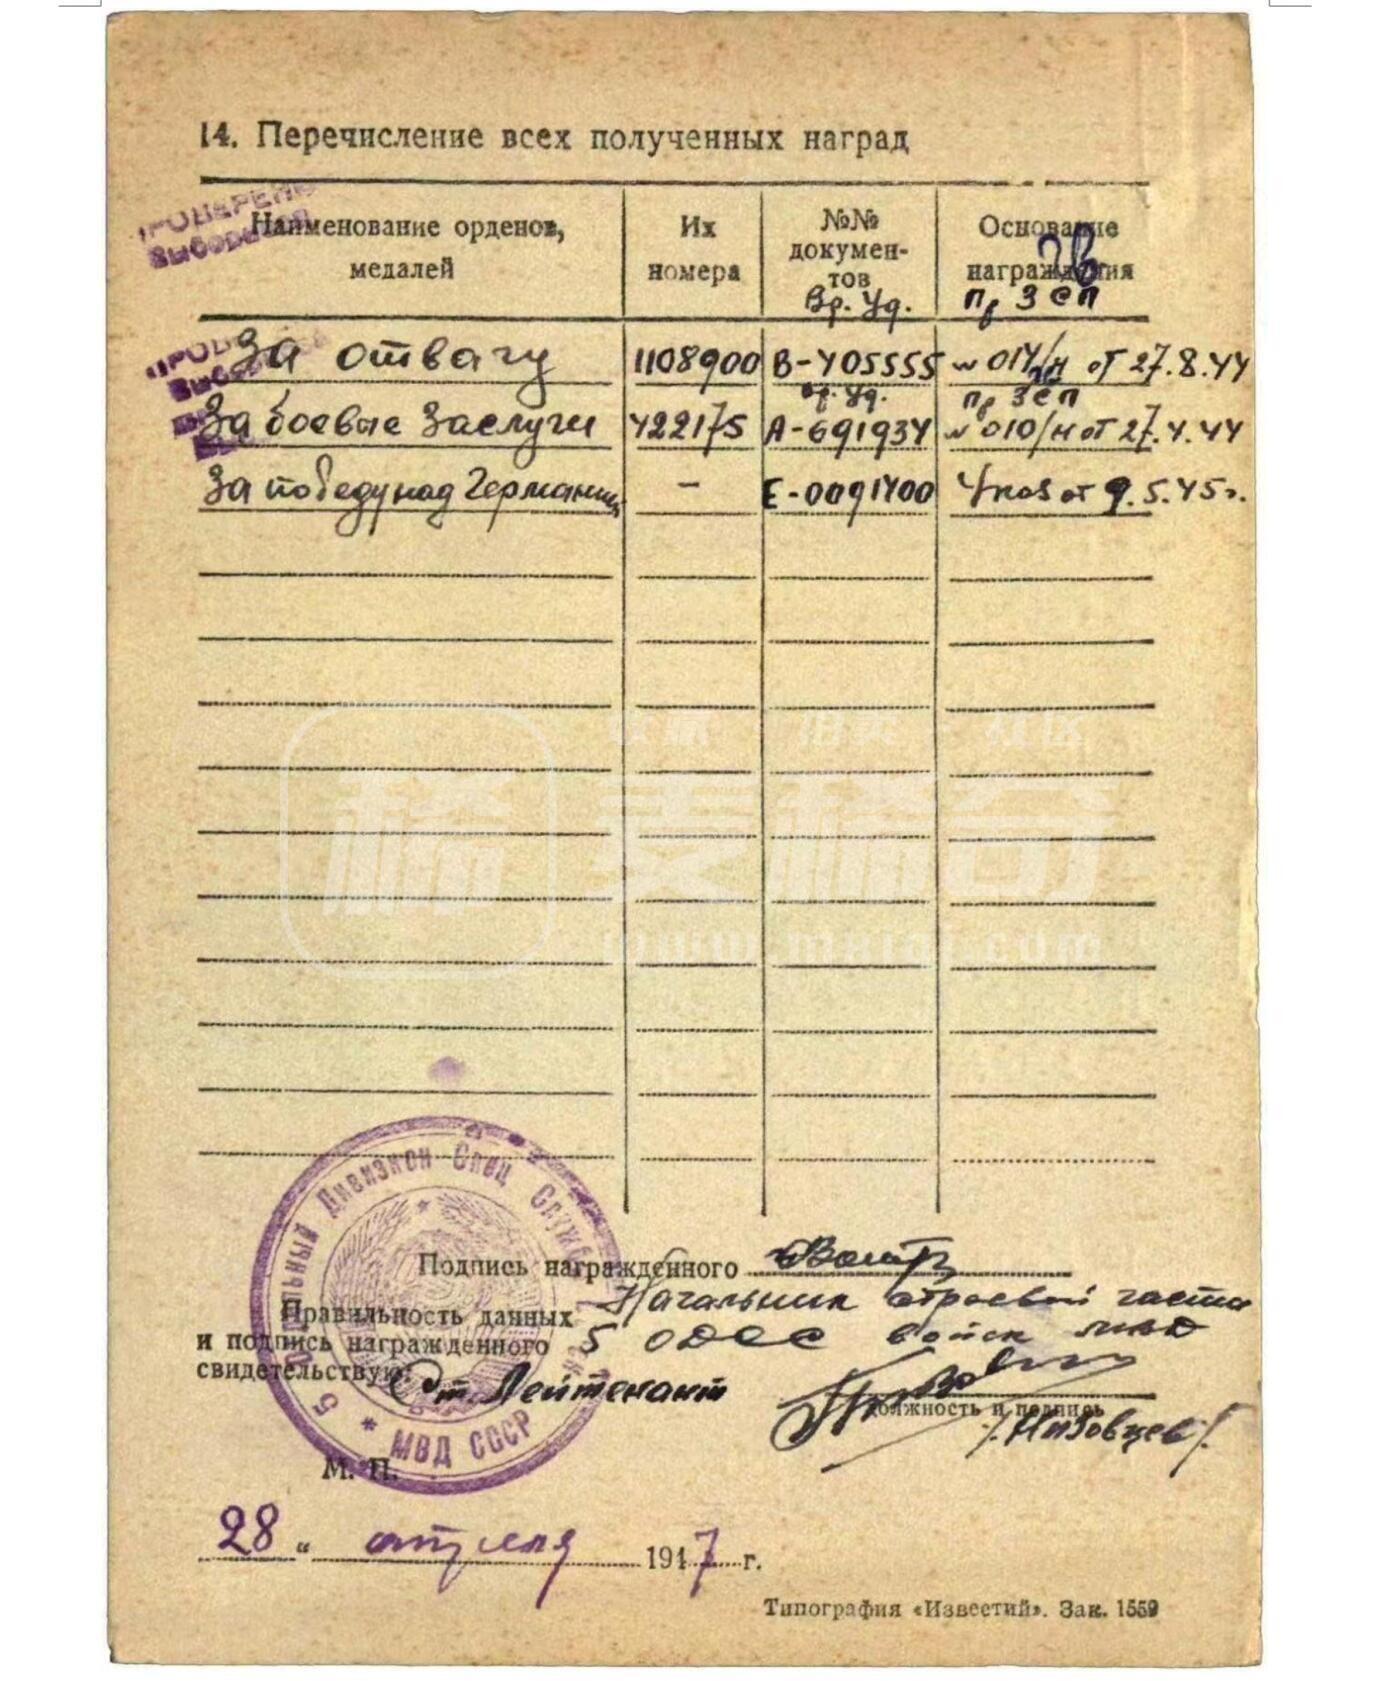 14. Перечисление всех полученных наград
Наименование орденов, медалей
Их номера
№№ документов
Вр. Уд.
Основание награждения
Пр ЗСП
За отвагу 1108900 В-405555 № 014/н от 27.8.44
Вр. Уд. Пр ЗСП
За боевые заслуги 422175 А-691934 № 010/н от 27.4.44
За победу над Германией - Е-0091400 Указ от 9.5.45г.
麦稀奇
www.mxiqi.com
Подпись награжденного
Правильность данных Начальник строевой части
и подпись награжденного 5 ОДСС войск МВД
свидетельствую: Ст. Лейтенант
должность и подпись
/Низовцев/
Дивизион Спец Служб
МВД СССР
М. П.
28 " апреля 1947 г.
Типография «Известий». Зак. 1559